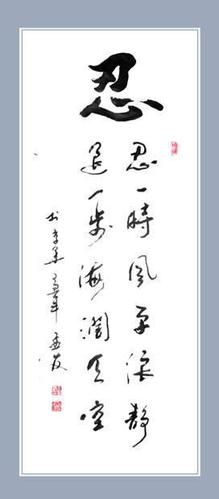 忍
忍一時風平浪靜
退一步海闊天空